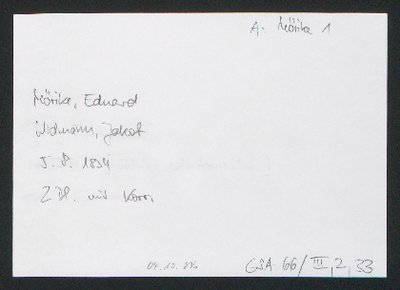 A: Mörike 1
Mörike, Eduard
Widmann, Jakob
5. 8. 1834
2 Bl. mit Korr.
GSA 66/III,2,33